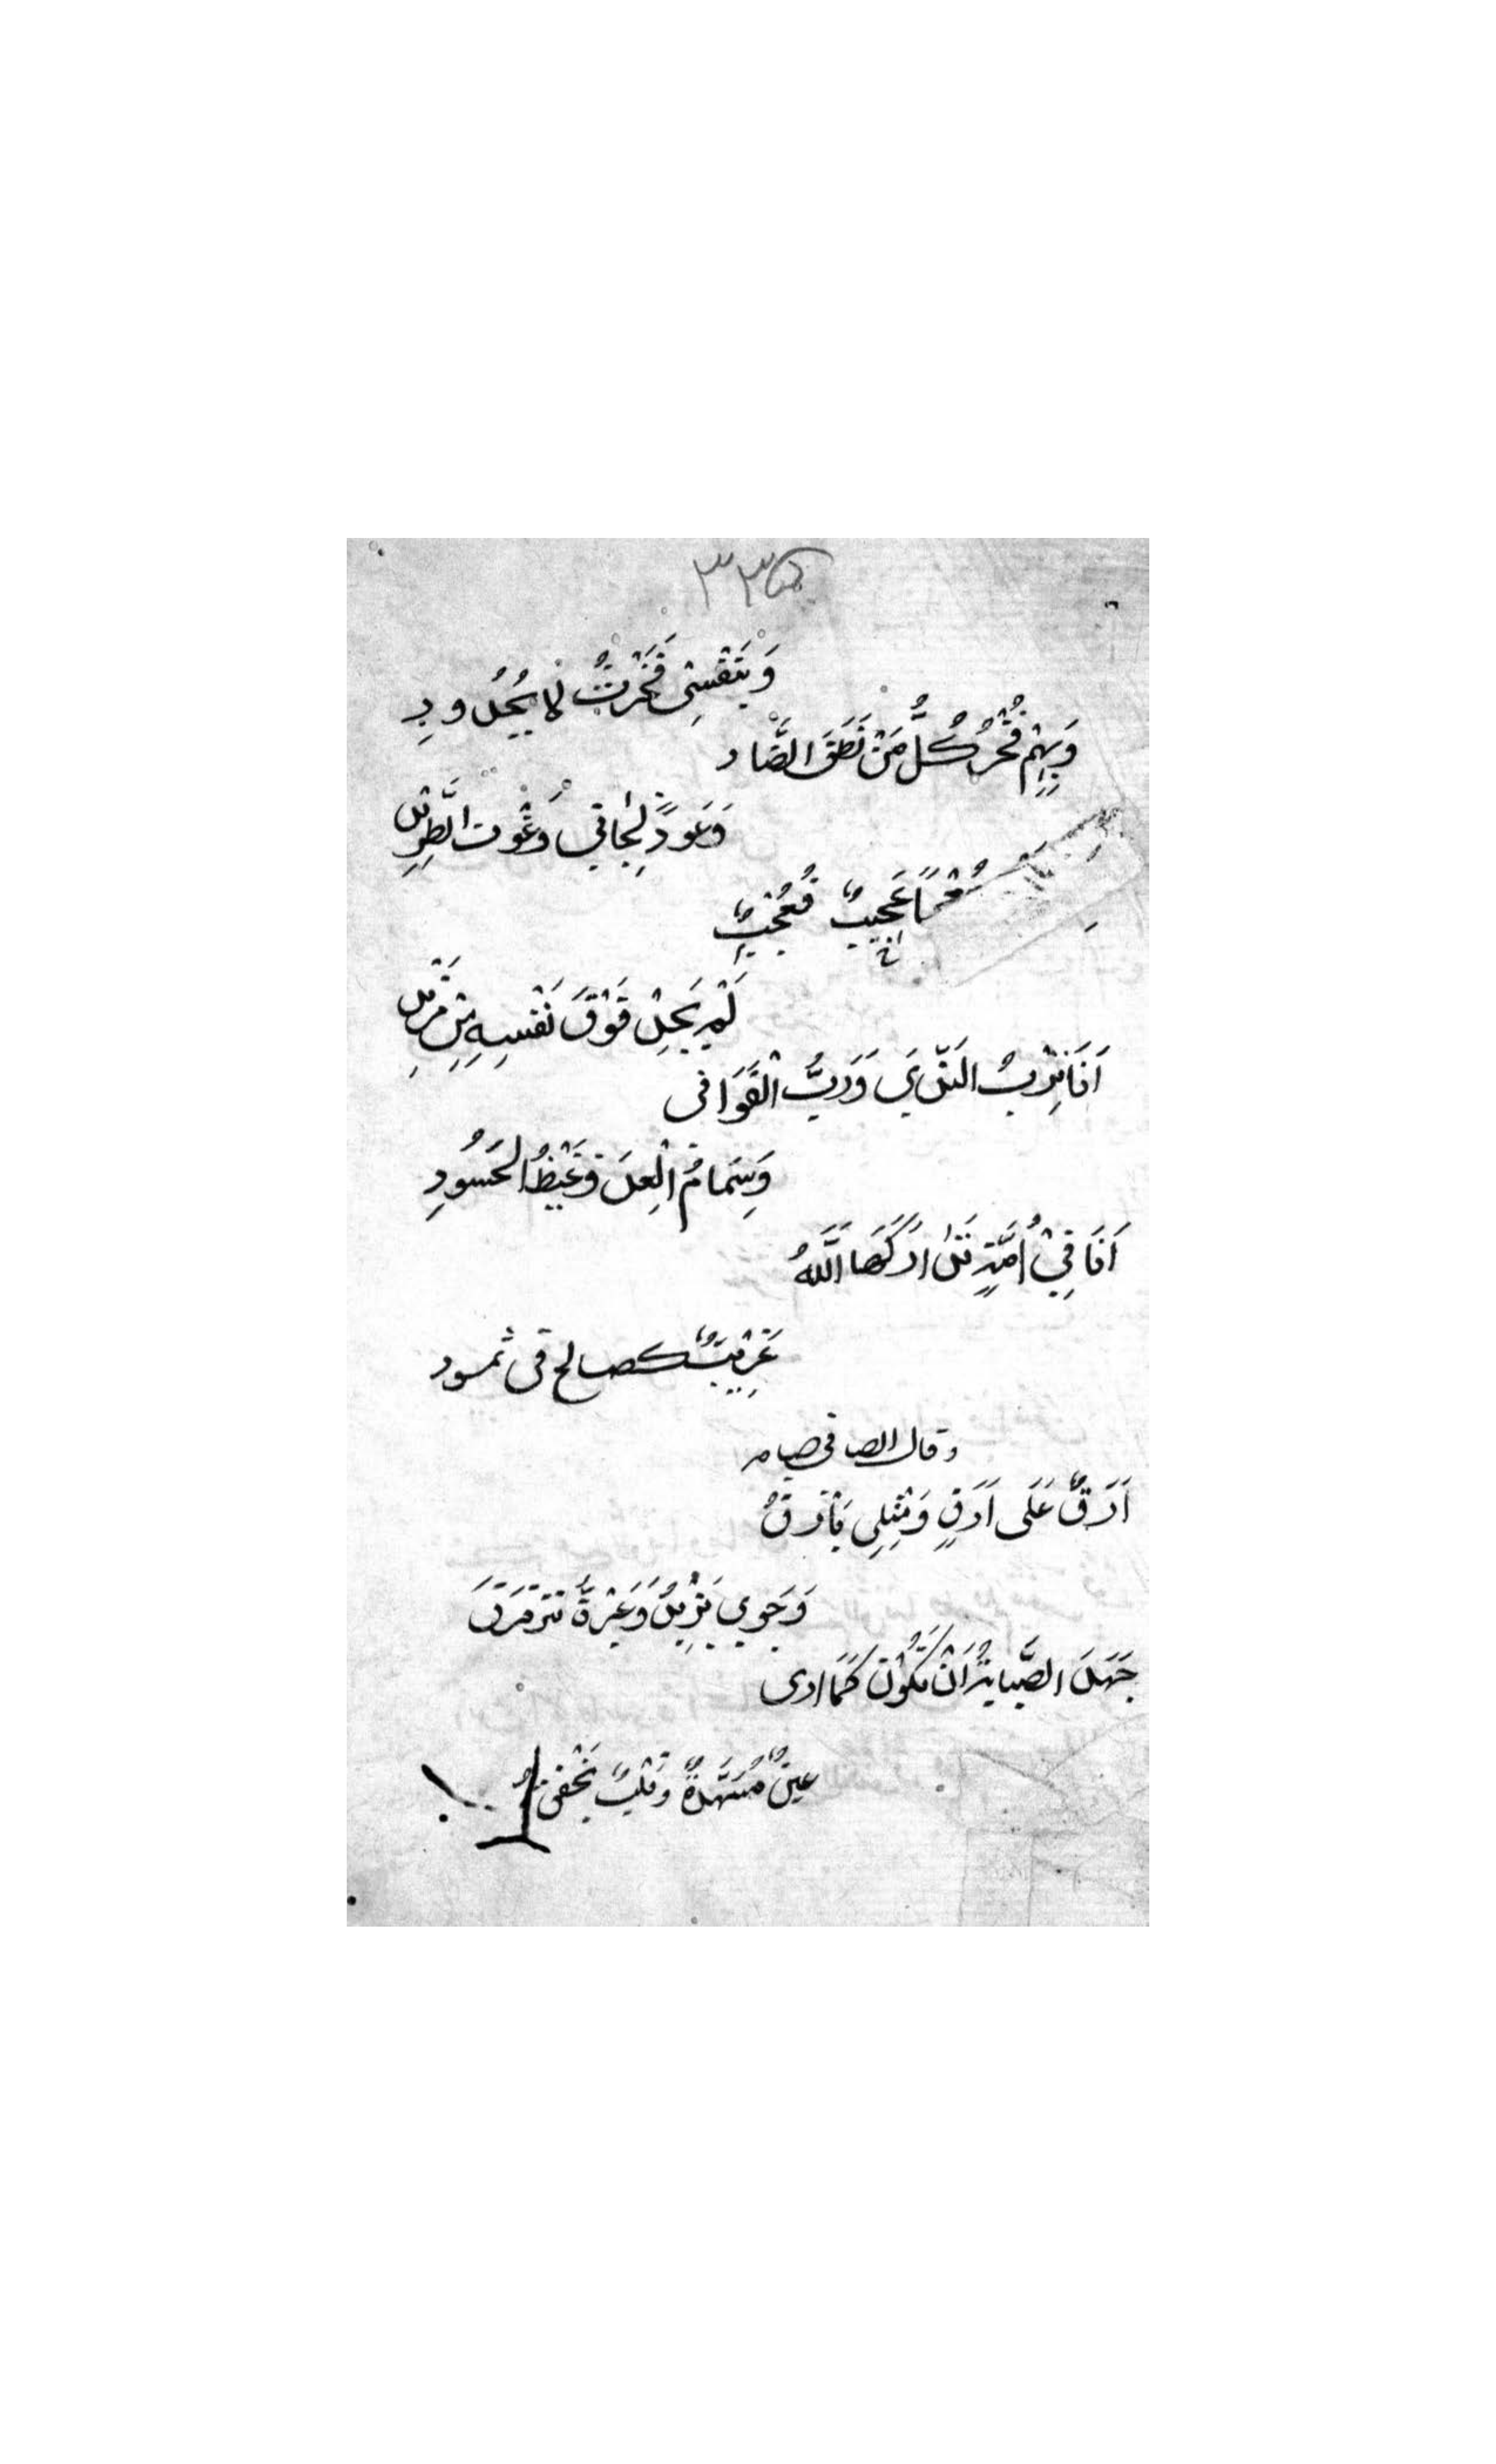 ٣٣
وَبِنَفْسِي فَخَرْتُ لا بِجُدُودِ
وَبِهِمْ فَخْرُ كُلُّ مَنْ نَطَقَ الضَّاد
وَعَوذُ الجاني وَغَوث الطَّرِيدِ
مُعْجَباً عَجِيبٌ فَعُجْبُ
لَمْ يَجِدْ فَوْقَ نَفْسِهِ مِنْ مَزْيدِ
اَنَا تِرْبُ النَّدَى وَرَبُّ الْقَوَافى
وَسِمَامُ الْعِدَى وَغَيْظُ الحَسُودِ
اَنَا فِيْ اُمَّةٍ تَدَارَكَهَا اللَّهُ
غَرِيْبٌ كصالح فى ثمود
وقال ايضا فى صباه
اَرَقٌ عَلَى اَرَقٍ وَمِثْلِي يَأْرَقُ
وَجَوي يَزْيدُ وَعَبْرَةٌ تترقرق
جَهْدَ الصَّبابةُ اَنْ تَكُوْنَ كَمَا ارى
عينٌ مُسَهَّدةٌ وَقَلْبٌ يَخْفقُ